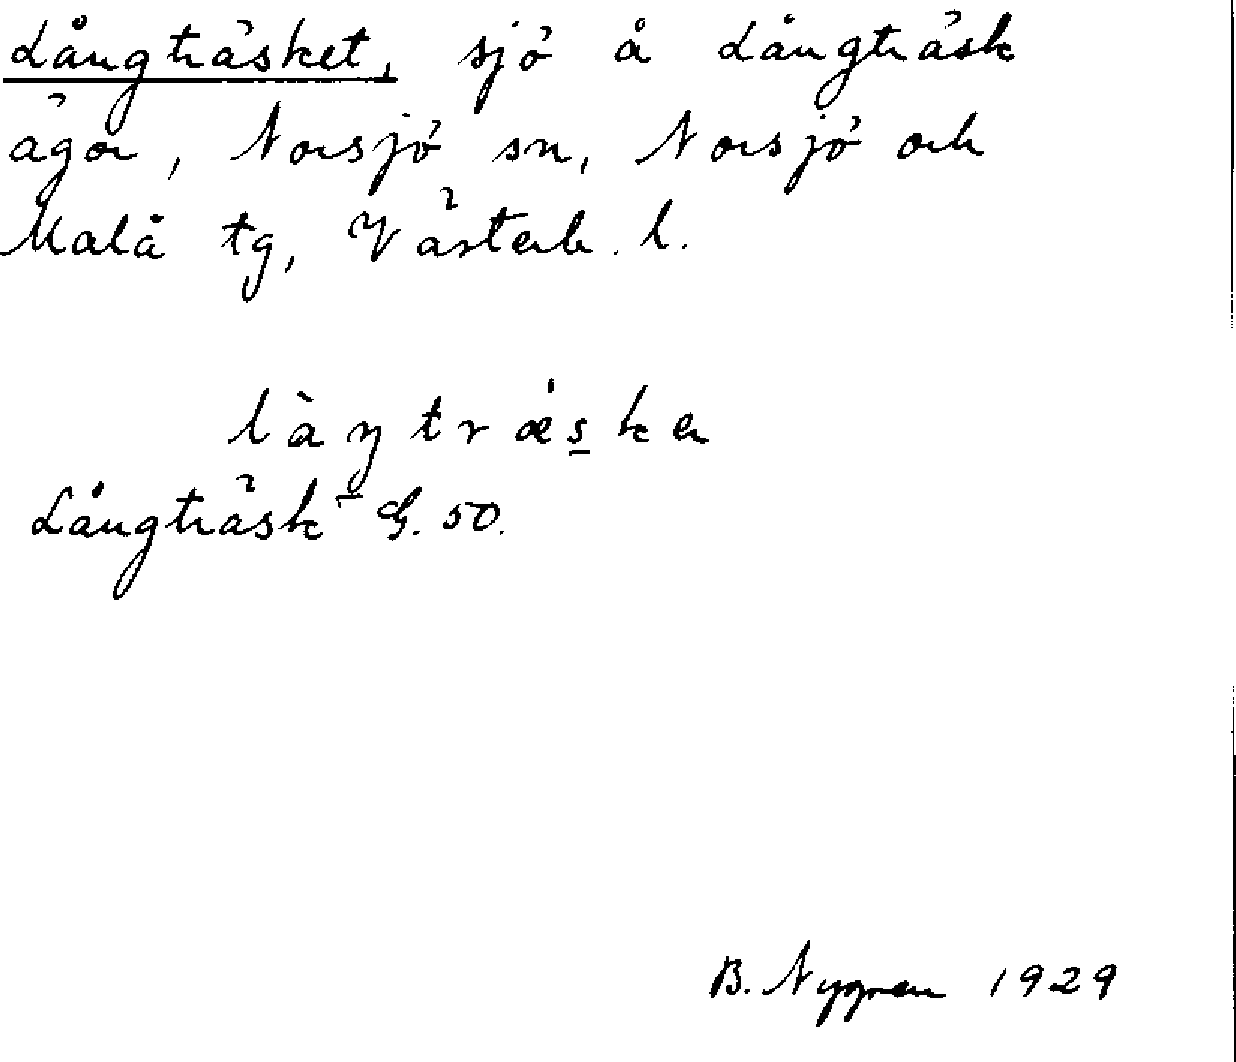 Långträsket, sjö å Långträsk
ägor, Norsjö sn, Norsjö och
Malå tg, Västerb. l.
làŋtræ̀s̲ken
Långträsk G. 50.
B. Nygren 1929